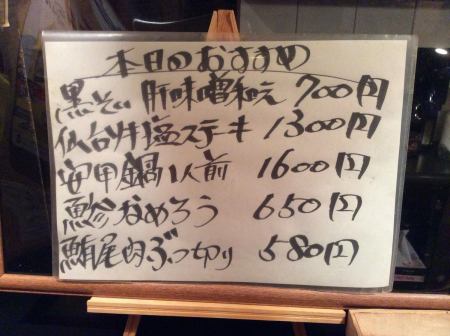 本日のおすすめ
黒そい 肝味噌和え 700円
仙台牛塩ステーキ 1300円
安甲鍋1人前 1600円
鯵なめろう 650円
鮪尾肉ぶつ切り 580円